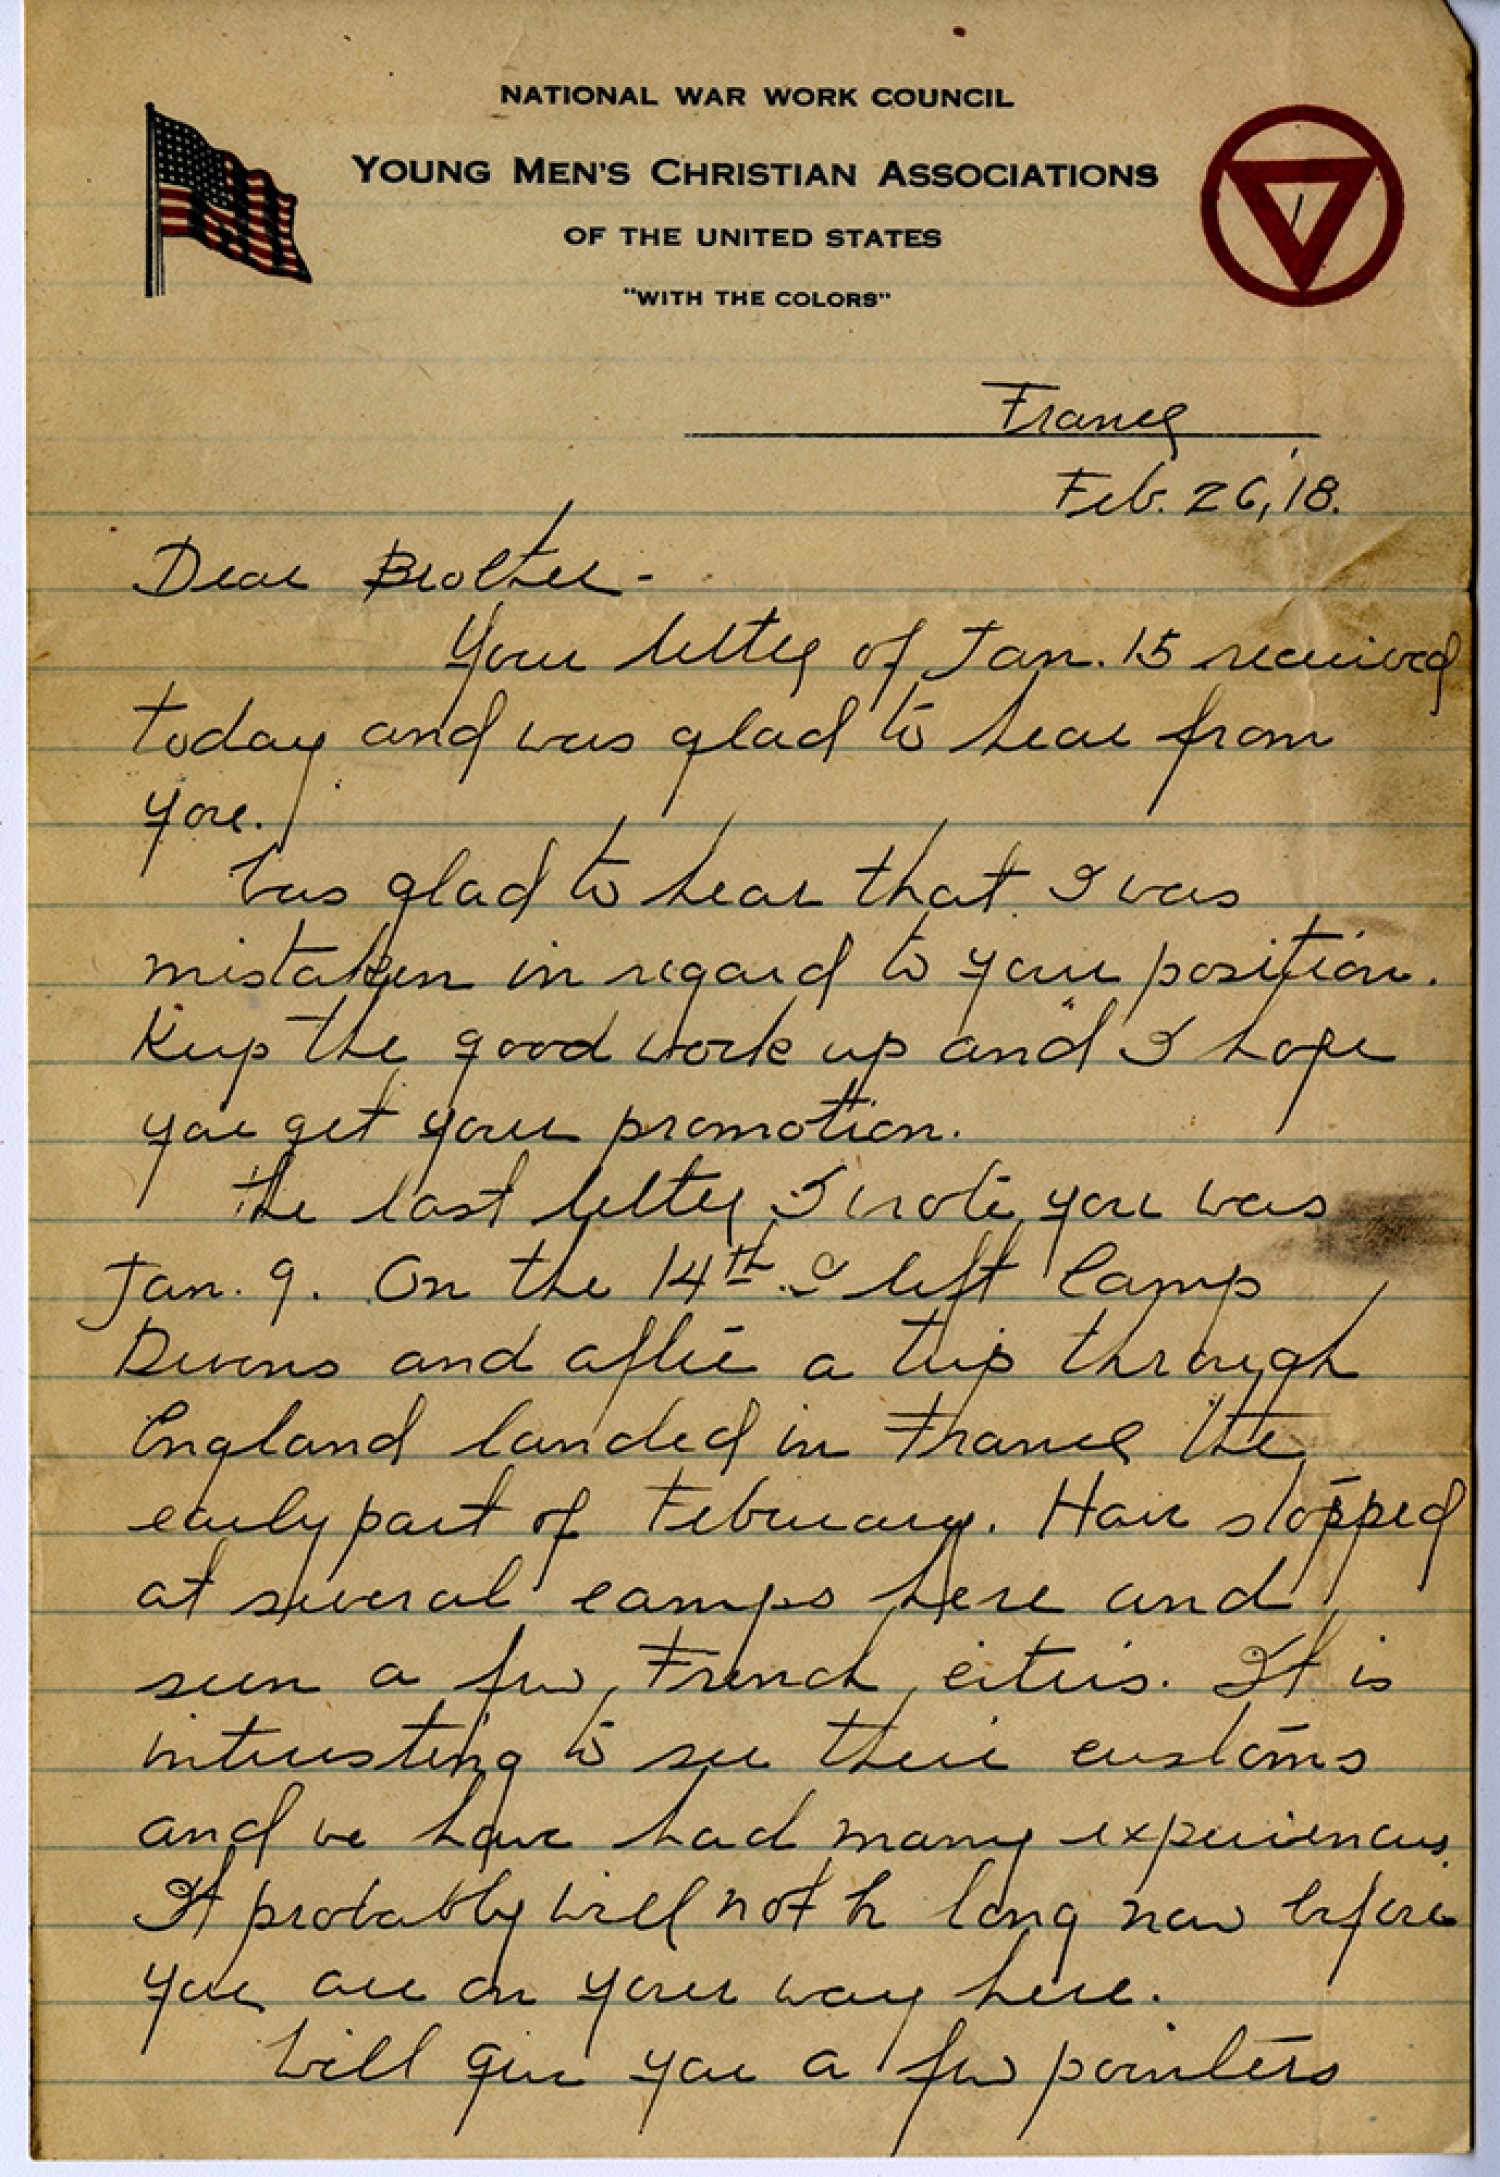 NATIONAL WAR WORK COUNCIL
YOUNG MEN'S CHRISTIAN ASSOCIATIONS
OF THE UNITED STATES
"WITH THE COLORS"
1
France
Feb. 26, '18.
Dear Brother -
Your letter of Jan. 15 received
today and was glad to hear from
you.
Was glad to hear that I was
mistaken in regard to your position.
Keep the good work up and I hope
you get your promotion.
The last letter I wrote you was
Jan. 9. On the 14th I left Camp
Devens and after a trip through
England landed in France the
early part of February. Have stopped
at several camps here and
seen a few French cities. It is
interesting to see their customs
and we have had many experiences.
It probably will not be long now before
you are on your way here.
Will give you a few pointers